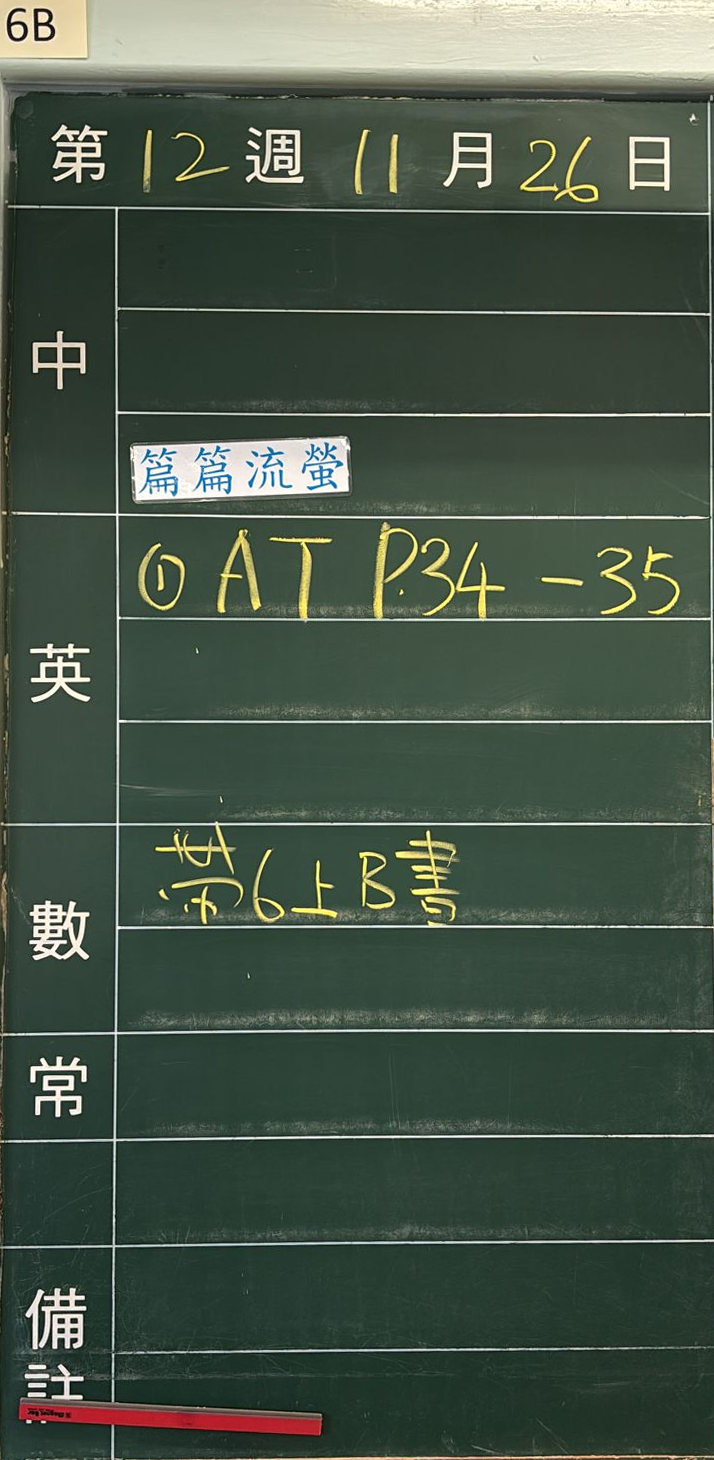 6B
第12週11月26日
中
篇篇流螢
英
① AT P.34-35
數
帶6上B書
常
備註